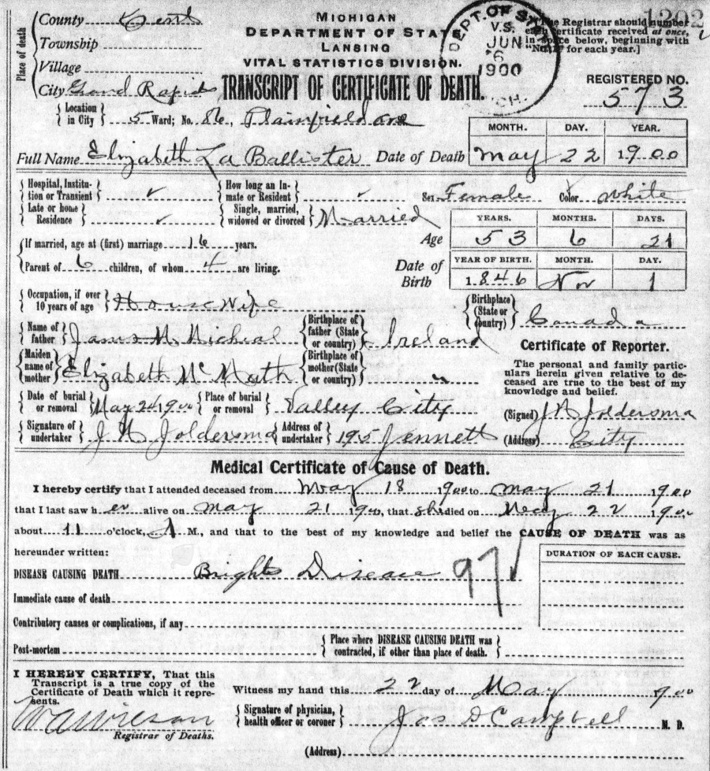 Place of death
County Kent
Township
Village
City Grand Rapids
MICHIGAN
DEPARTMENT OF STATE
LANSING
VITAL STATISTICS DIVISION.
TRANSCRIPT OF CERTIFICATE OF DEATH.
DEPT. OF STATE
V.S.
JUN
6
1900
MICH.
[The Registrar should number
each certificate received at once,
in space below, beginning with
"No. 1" for each year.]
REGISTERED NO.
573
Location in City 5 Ward; No. 86, Plainfield ave
Full Name Elizabeth La Ballister Date of Death
MONTH. DAY. YEAR.
May 22 1900
Hospital, Institution or Transient ✓ How long an Inmate or Resident ✓ Sex Female Color White
Late or home Residence ✓ Single, married, widowed or divorced Married
If married, age at (first) marriage 16 years.
Parent of 6 children, of whom 4 are living.
Age
YEARS. MONTHS. DAYS.
53 6 21
Date of Birth
YEAR OF BIRTH. MONTH. DAY.
1846 Nov 1
Occupation, if over 10 years of age House Wife
Birthplace (State or Country) Canada
Name of father James M. Micheal Birthplace of father (State or country) Ireland
Maiden name of mother Elizabeth McMath Birthplace of mother (State or country) "
Date of burial or removal May 24 1900 Place of burial or removal Valley City
Signature of undertaker J N Joldersma Address of undertaker 195 Jennett
Certificate of Reporter.
The personal and family particulars
herein given relative to deceased
are true to the best of my
knowledge and belief.
(Signed) J N Joldersma
(Address) City
Medical Certificate of Cause of Death.
I hereby certify that I attended deceased from May 18 1900 to May 21 1900
that I last saw her alive on May 21 1900, that she died on May 22 1900
about 11 o'clock, A M., and that to the best of my knowledge and belief the CAUSE OF DEATH was as
hereunder written:
DURATION OF EACH CAUSE.
DISEASE CAUSING DEATH Brights Disease
97
Immediate cause of death
Contributory causes or complications, if any
Post-mortem Place where DISEASE CAUSING DEATH was contracted, if other than place of death.
I HEREBY CERTIFY, That this
Transcript is a true copy of the
Certificate of Death which it represents.
Registrar of Deaths.
Witness my hand this 22 day of May 1900
Signature of physician, health officer or coroner Jas D Campbell M. D.
(Address)